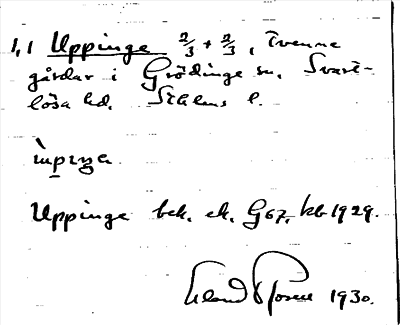 1,1 Uppinge 2/3 + 2/3, Tvenne
gårdar i Grödinge sn, Svart-
lösa hd. Sthlms l.
Uppinge bek. ek. G67, kb 1929.
1930.